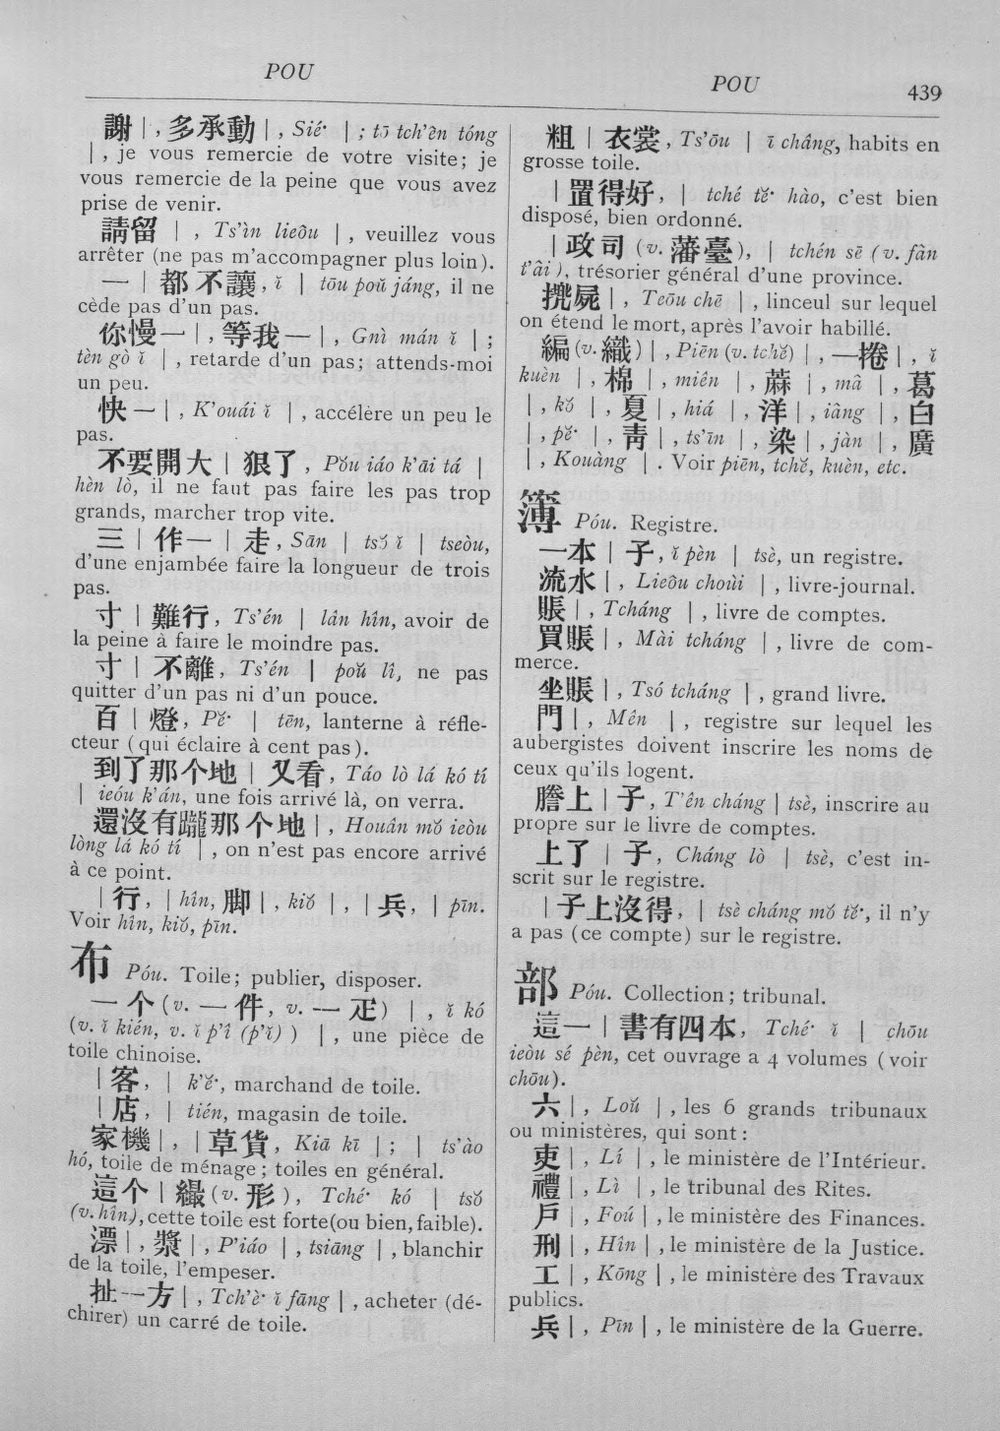 POU
POU
439
謝 | , 多承動 | , Sié· | ; tō tch'ên tóng
| , je vous remercie de votre visite; je
vous remercie de la peine que vous avez
prise de venir.
請留 | , Ts'ìn lieôu | , veuillez vous
arrêter (ne pas m'accompagner plus loin).
一 | 都不讓, ǐ | tōu poŭ jáng, il ne
cède pas d'un pas.
你慢一 | , 等我一 | , Gnì mán ǐ | ;
tèn gò ǐ | , retarde d'un pas; attends-moi
un peu.
快一 | , K'ouái ǐ | , accélère un peu le
pas.
不要開大 | 狠了, Pŏu iáo k'āi tá |
hèn lò, il ne faut pas faire les pas trop
grands, marcher trop vite.
三 | 作一 | 走, Sān | tsŏ ǐ | tseòu,
d'une enjambée faire la longueur de trois
pas.
寸 | 難行, Ts'én | lân hîn, avoir de
la peine à faire le moindre pas.
寸 | 不離, Ts'én | poŭ lî, ne pas
quitter d'un pas ni d'un pouce.
百 | 燈, Pĕ· | tēn, lanterne à réfle-
cteur (qui éclaire à cent pas).
到了那个地 | 又看, Táo lò lá kó tí
| ieóu k'án, une fois arrivé là, on verra.
還沒有躘那个地 | , Houân mŏ ieòu
lòng lá kó tí | , on n'est pas encore arrivé
à ce point.
| 行, | hîn, 脚 | , kiŏ | , | 兵, | pīn.
Voir hîn, kiŏ, pīn.
布 Póu. Toile; publier, disposer.
一个 (v. 一件, v. 一疋) | , ǐ kó
(v. ǐ kién, v. ǐ p'î (p'ǐ) ) | , une pièce de
toile chinoise.
| 客, | k'ĕ·, marchand de toile.
| 店, | tién, magasin de toile.
家機 | , | 草貨, Kiā kī | ; | ts'ào
hó, toile de ménage; toiles en général.
這个 | 纈 (v. 形), Tché· kó | tsŏ
(v. hîn), cette toile est forte (ou bien, faible).
漂 | , 漿 | , P'iáo | , tsiāng | , blanchir
de la toile, l'empeser.
扯一方 | , Tch'è· ǐ fāng | , acheter (dé-
chirer) un carré de toile.
粗 | 衣裳, Ts'ōu | ī châng, habits en
grosse toile.
| 置得好, | tché tĕ· hào, c'est bien
disposé, bien ordonné.
| 政司 (v. 藩臺), | tchén sē (v. fân
t'âi), trésorier général d'une province.
㧯屍 | , Teōu chē | , linceul sur lequel
on étend le mort, après l'avoir habillé.
編 (v. 織) | , Piēn (v. tchĕ) | , 一捲 | , ǐ
kuèn | , 棉 | , miên | , 蔴 | , mâ | , 葛
| , kŏ | , 夏 | , hiá | , 洋 | , iâng | , 白
| , pĕ· | , 靑 | , ts'īn | , 染 | , jàn | , 廣
| , Kouàng | . Voir piēn, tchĕ, kuèn, etc.
簿 Póu. Registre.
一本 | 子, ǐ pèn | tsè, un registre.
流水 | , Lieôu choùi | , livre-journal.
賬 | , Tcháng | , livre de comptes.
買賬 | , Mài tcháng | , livre de com-
merce.
坐賬 | , Tsó tcháng | , grand livre.
門 | , Mên | , registre sur lequel les
aubergistes doivent inscrire les noms de
ceux qu'ils logent.
謄上 | 子, T'ên cháng | tsè, inscrire au
propre sur le livre de comptes.
上了 | 子, Cháng lò | tsè, c'est in-
scrit sur le registre.
| 子上沒得, | tsè cháng mŏ tĕ·, il n'y
a pas (ce compte) sur le registre.
部 Póu. Collection; tribunal.
這一 | 書有四本, Tché· ǐ | chōu
ieòu sé pèn, cet ouvrage a 4 volumes (voir
chōu).
六 | , Loŭ | , les 6 grands tribunaux
ou ministères, qui sont:
吏 | , Lí | , le ministère de l'Intérieur.
禮 | , Lì | , le tribunal des Rites.
戶 | , Foú | , le ministère des Finances.
刑 | , Hîn | , le ministère de la Justice.
工 | , Kōng | , le ministère des Travaux
publics.
兵 | , Pīn | , le ministère de la Guerre.